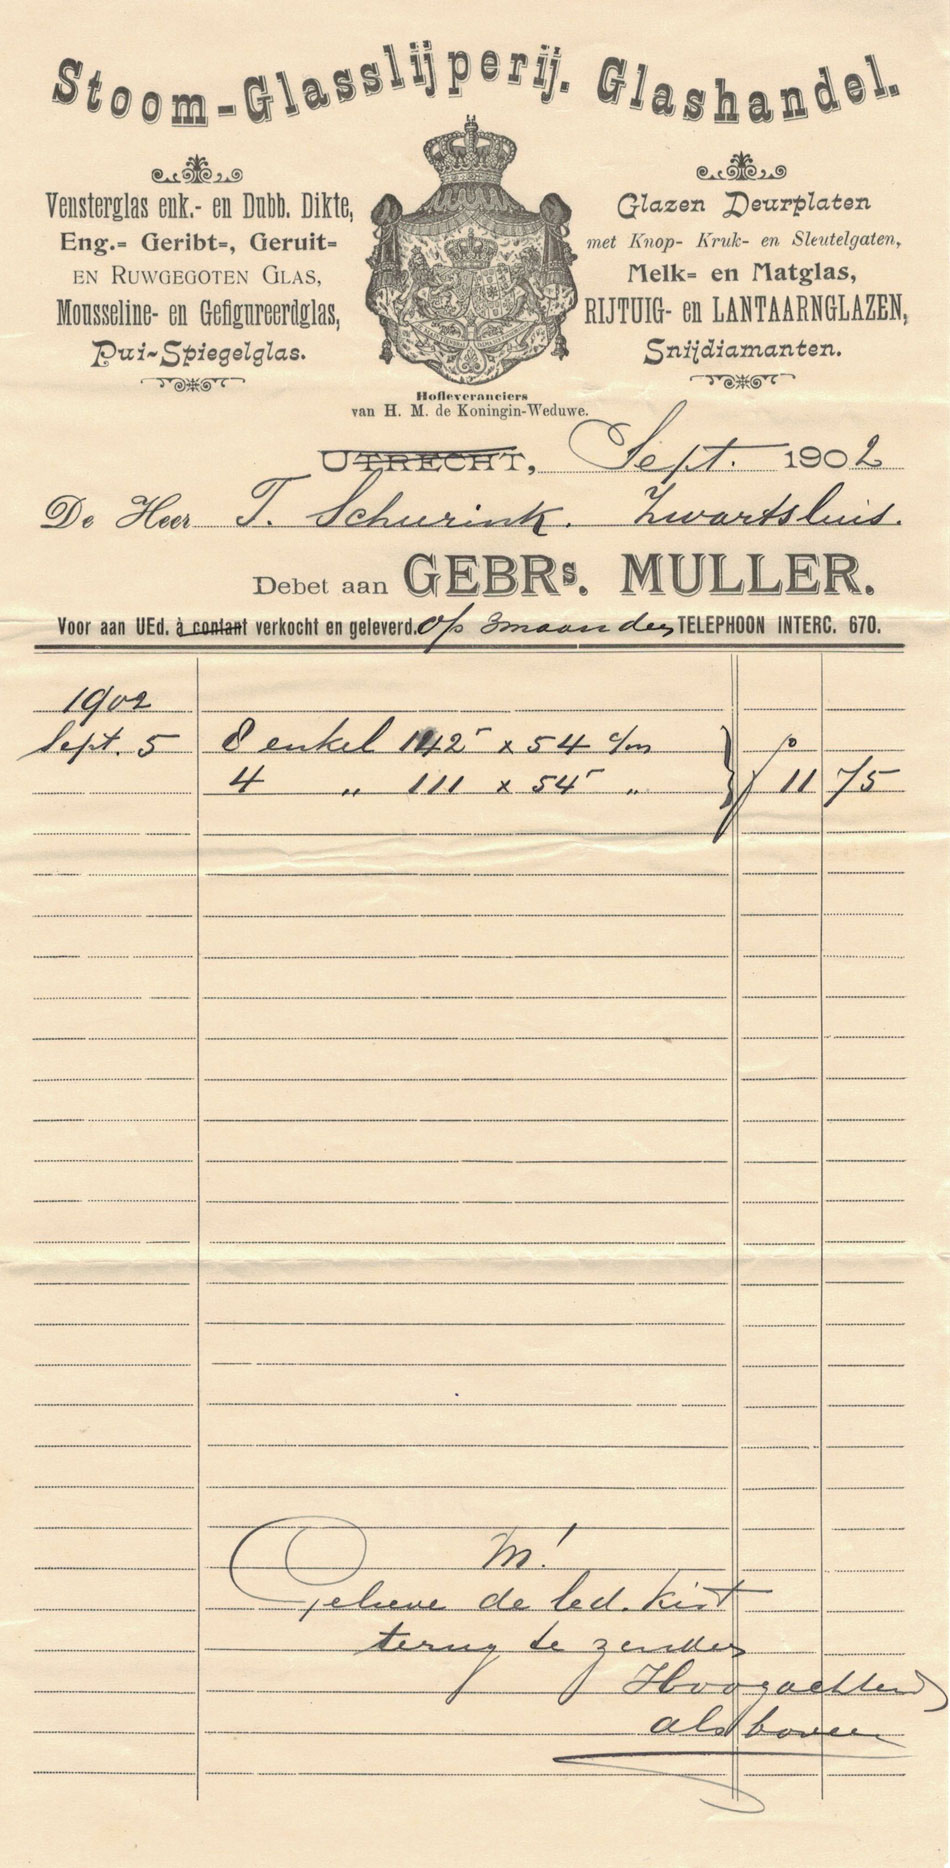 Stoom-Glasslijperij. Glashandel.
Vensterglas enk.- en Dubb. Dikte,
Eng.= Geribt=, Geruit=
EN RUWGEGOTEN GLAS,
Mousseline- en Gefigureerdglas,
Pui-Spiegelglas.
Glazen Deurplaten
met Knop- Kruk- en Sleutelgaten,
Melk= en Matglas,
RIJTUIG- en LANTAARNGLAZEN,
Snijdiamanten.
Hofleveranciers
van H. M. de Koningin-Weduwe.
UTRECHT, Sept. 1902
De Heer T. Schurink. Zwartsluis.
Debet aan GEBRs. MULLER.
Voor aan UEd. à contant verkocht en geleverd. Op 3 maanden TELEPHOON INTERC. 670.
1902
Sept. 5 8 enkel 142⁵ x 54 c/m
4 „ 111 x 54⁵ „ ƒ 11 75
M!
Gelieve de led. kist
terug te zenden
Hoogachtend
als boven